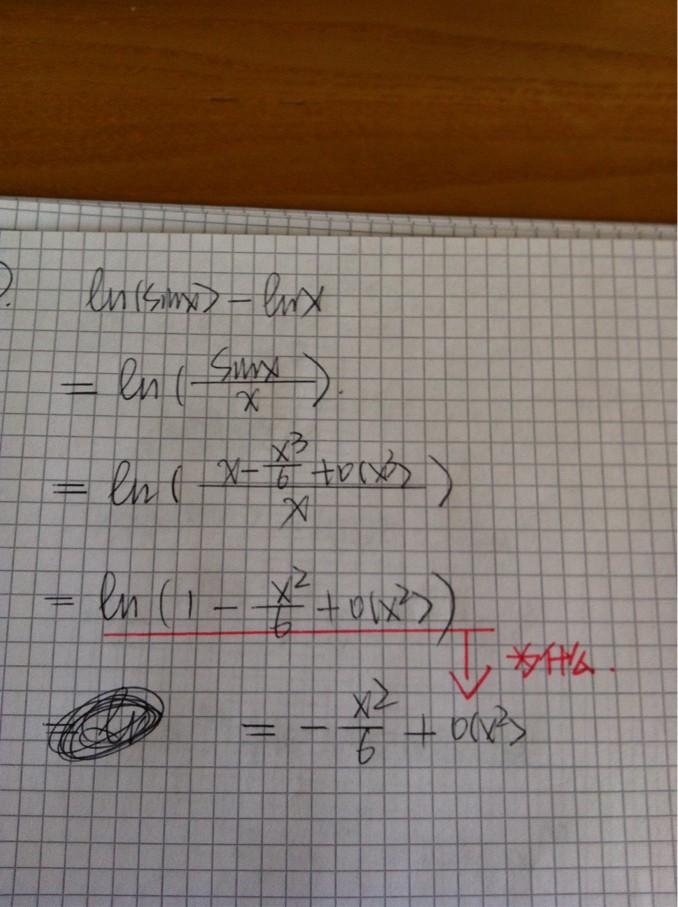 ln(sinx) - lnx
= ln(\frac{sinx}{x}).
= ln(\frac{x-\frac{x^3}{6}+o(x^3)}{x})
= ln(1-\frac{x^2}{6}+o(x^2))
为什么.
= -\frac{x^2}{6}+o(x^2)